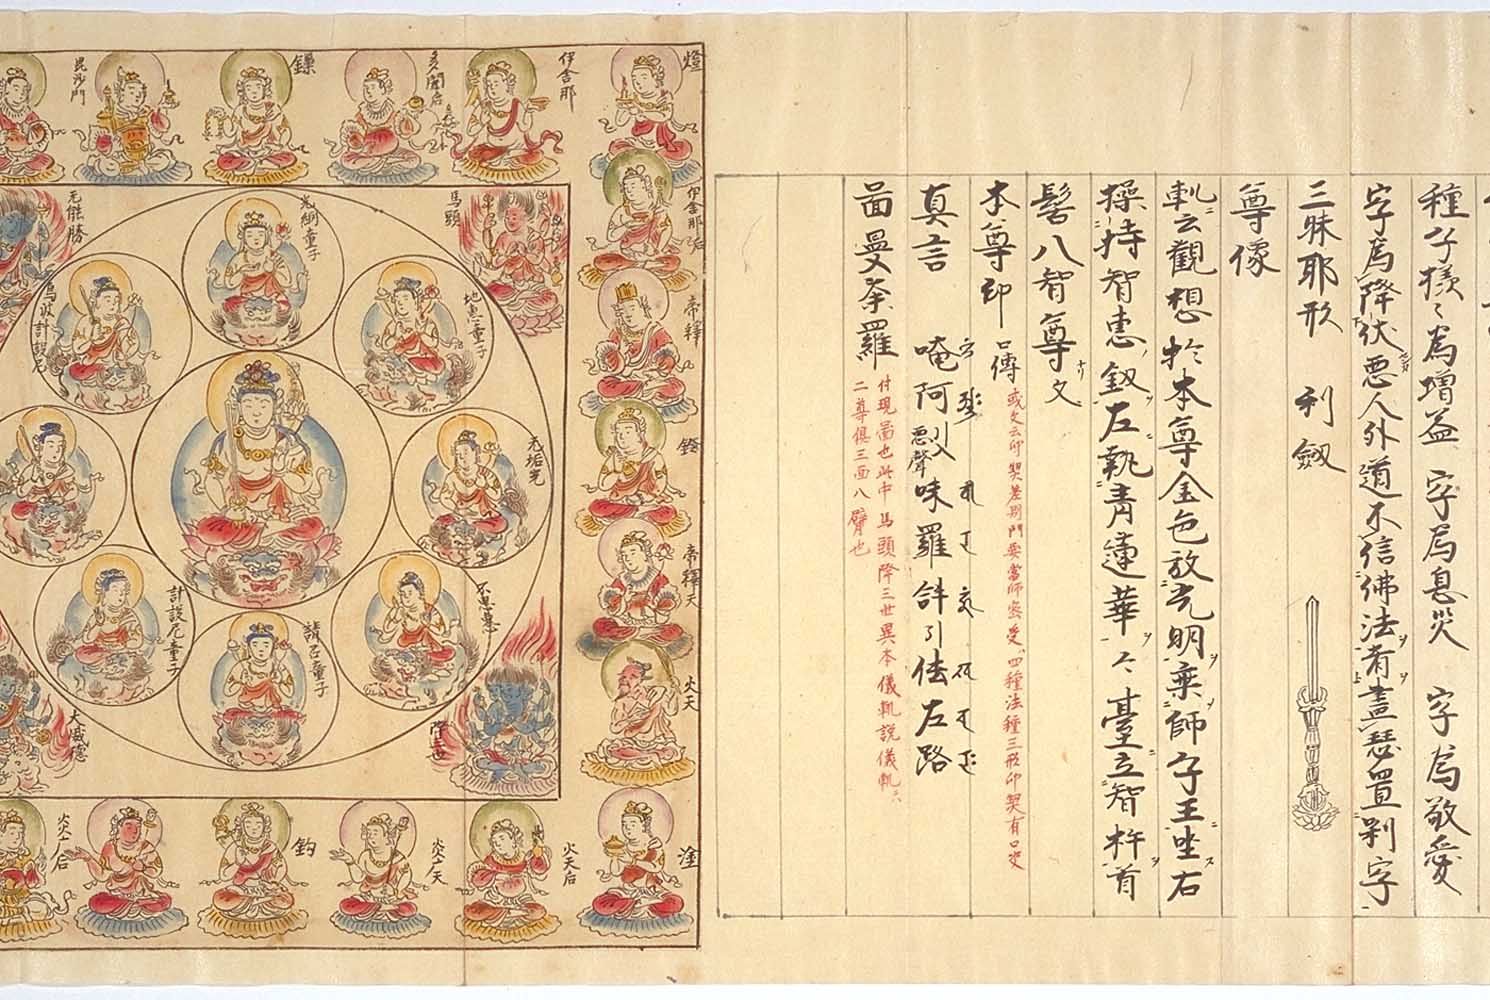 種子様〻為増益 字為息災 字為敬愛
字為降伏悪人外道不信佛法者畫瑟置剃字
三昧耶形 利釼
尊像
軌云觀想於本尊金色放光明乗師子王坐右
操持智恵釼左執青蓮華〻臺立智杵首
髻八智尊文
本尊印 口傳
或文云印契差別門要當師密受四種法種三形印契有口受
真言 唵阿引悪聲味羅𤙖引佉左路
啚曼荼羅
付現啚也此中馬頭降三世異本儀軌説儀軌云
二尊俱三面八臂也
燈
伊舎那后
帝釋
鎖
帝釋天
火天
塗
伊舎那
多聞后
鏁
毘沙門
馬頭
光網童子
无能勝
地恵童子
烏波計設尼
无垢光
不思恵
請召童子
計設尼童子
降三世
大威徳
火天后
炎广天
鈎
炎广后